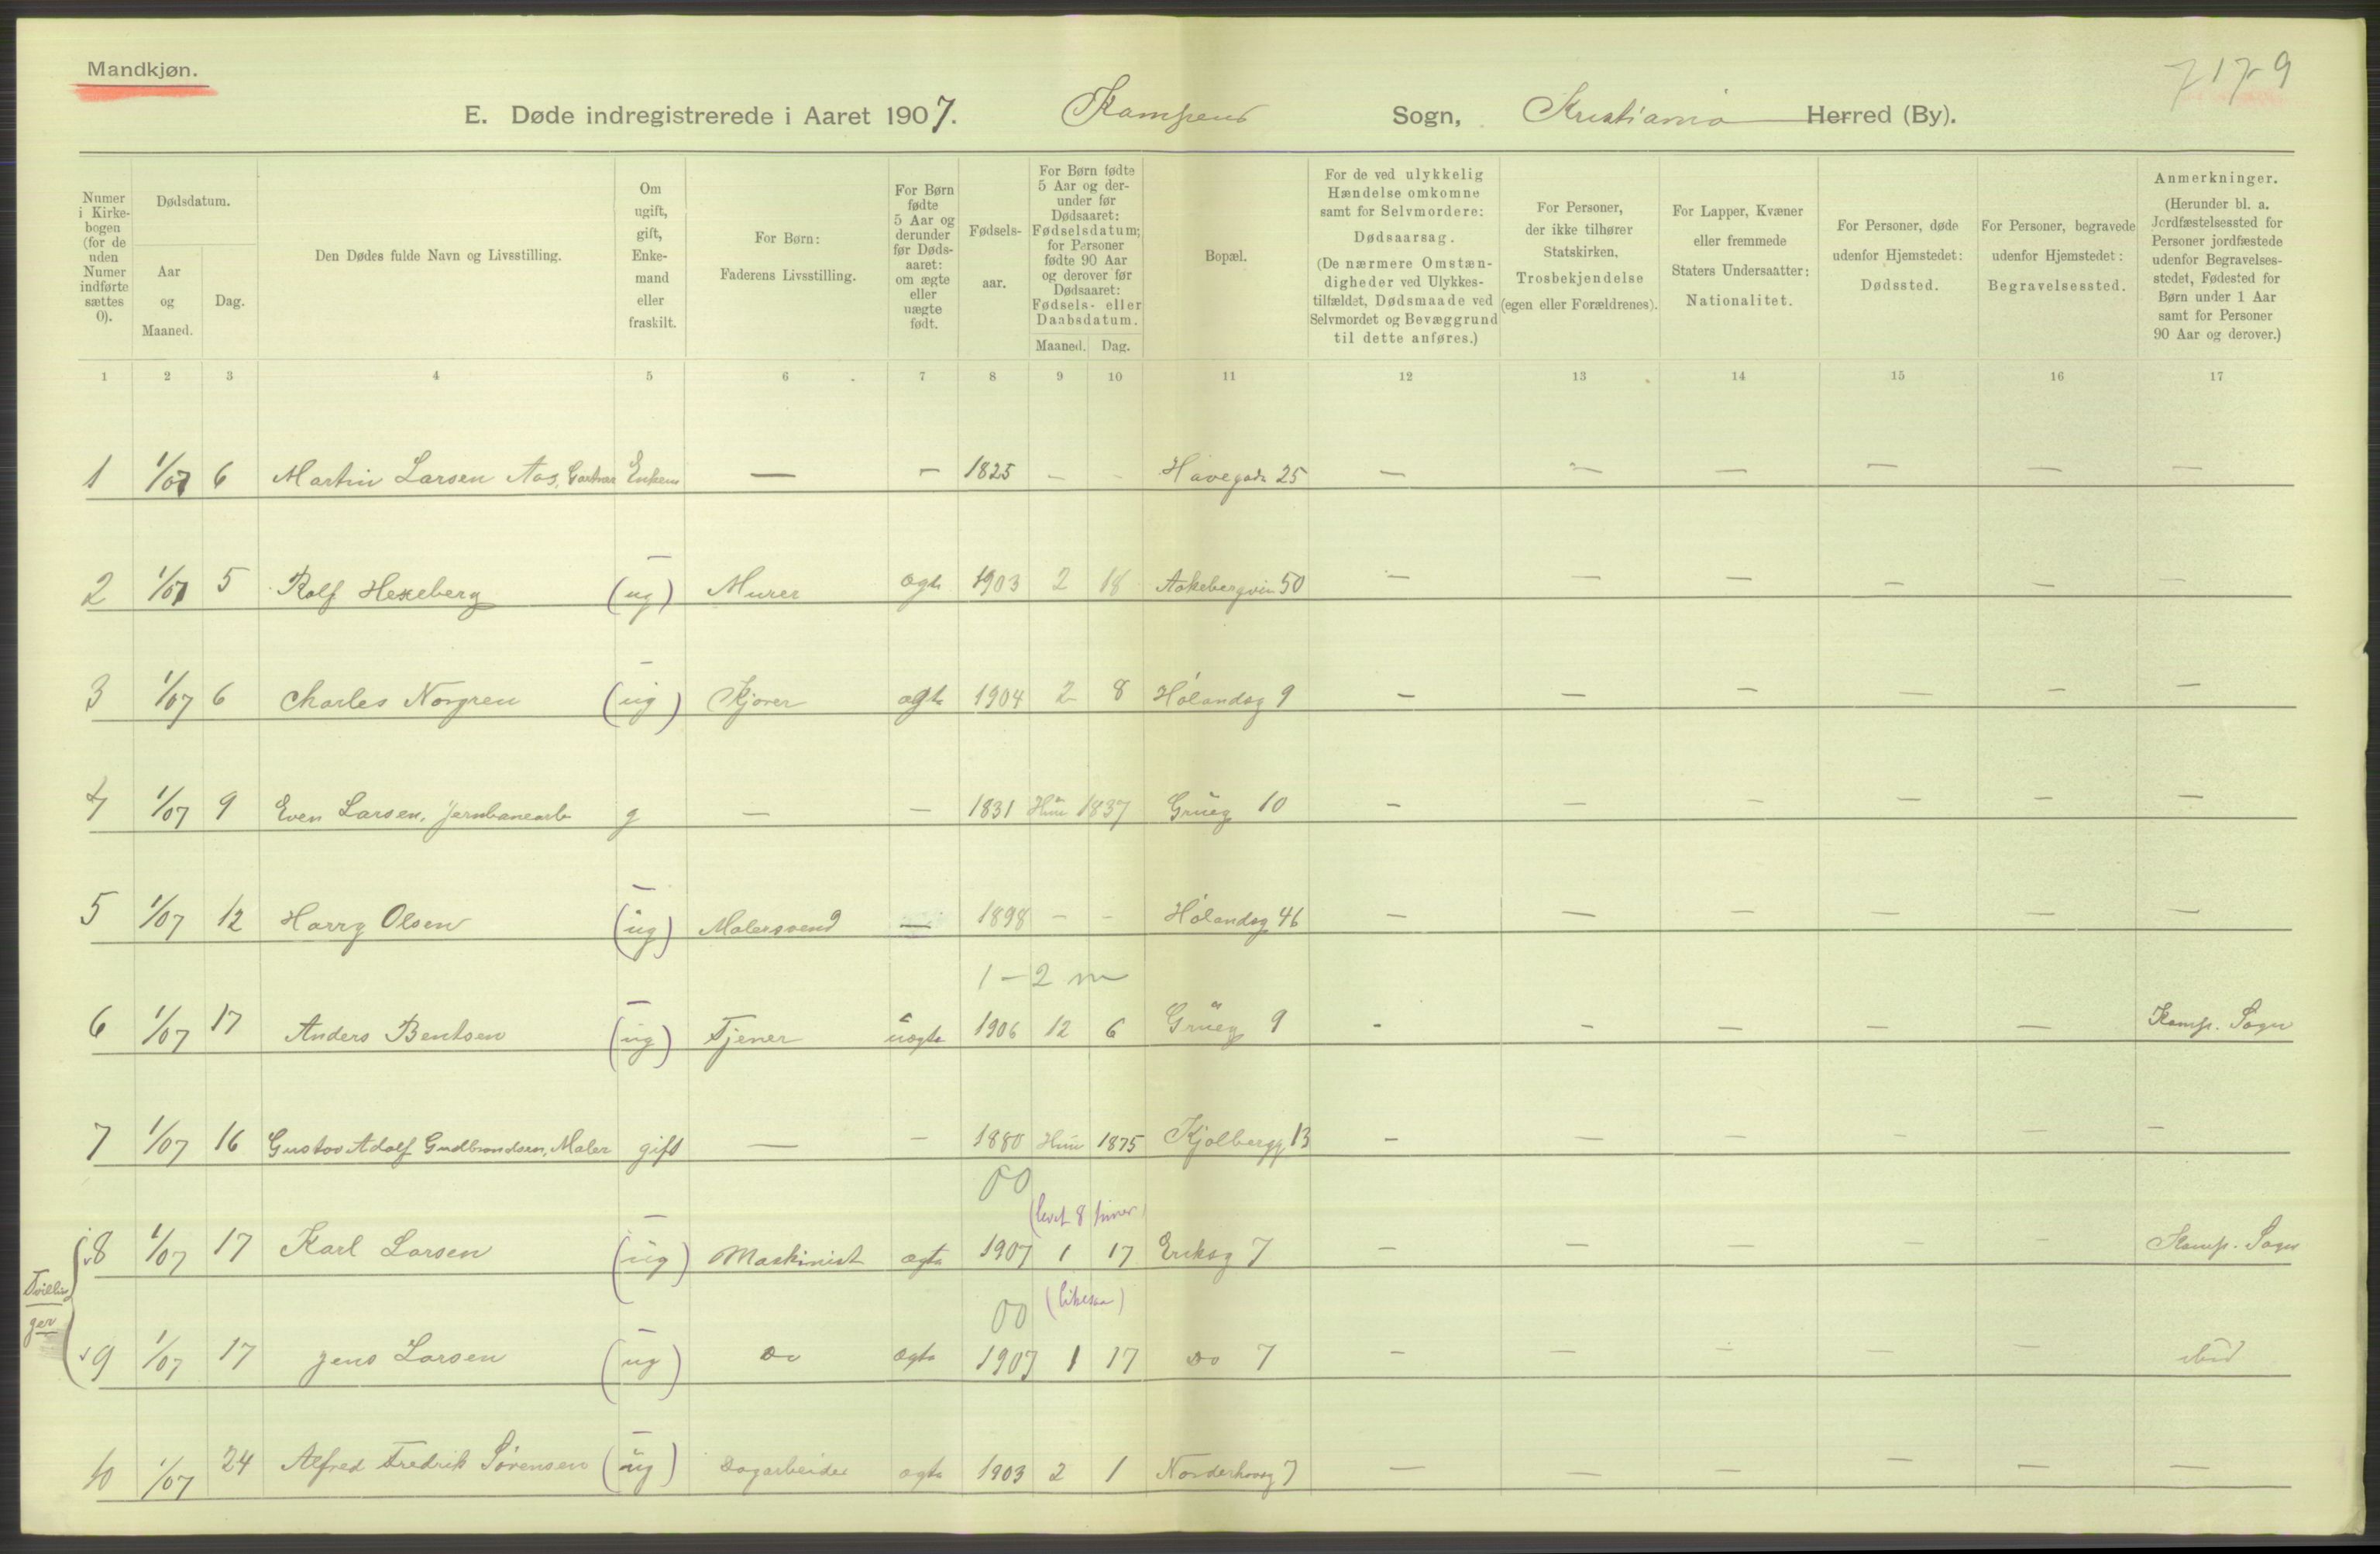 Mandkjøn.
7179
E. Døde indregistrerede i Aaret 1907. Kampens Sogn, Kristiania Herred (By).
Numer i Kirkebogen (for de uden Numer indførte sættes 0).
Dødsdatum.
Aar og Maaned.
Dag.
Den Dødes fulde Navn og Livsstilling.
Om ugift, gift, Enkemand eller fraskilt.
For Børn: Faderens Livsstilling.
For Børn fødte 5 Aar og derunder før Dødsaaret: om ægte eller uægte født.
Fødselsaar.
For Børn fødte 5 Aar og derunder før Dødsaaret: Fødselsdatum; for Personer fødte 90 Aar og derover før Dødsaaret: Fødsels- eller Daabsdatum.
Maaned. Dag.
Bopæl.
For de ved ulykkelig Hændelse omkomne samt for Selvmordere: Dødsaarsag. (De nærmere Omstændigheder ved Ulykkestilfældet, Dødsmaade ved Selvmordet og Bevæggrund til dette anføres.)
For Personer, der ikke tilhører Statskirken, Trosbekjendelse (egen eller Forældrenes).
For Lapper, Kvæner eller fremmede Staters Undersaatter: Nationalitet.
For Personer, døde udenfor Hjemstedet: Dødssted.
For Personer, begravede udenfor Hjemstedet: Begravelsessted.
Anmerkninger. (Herunder bl. a. Jordfæstelsessted for Personer jordfæstede udenfor Begravelsesstedet, Fødested for Børn under 1 Aar samt for Personer 90 Aar og derover.)
1 2 3 4 5 6 7 8 9 10 11 12 13 14 15 16 17
1 1/07 6 Martin Larsen Aas, Gartner Enkem — — 1825 - - Havegade 25 — — — — — —
2 1/07 5 Rolf Hexeberg (ug) Murer ægte 1903 2 18 Aakebergvein 50 — — — — — —
3 1/07 6 Charles Norgren (ug) Kjører ægte 1904 2 8 Hølandsg 9 — — — — — —
4 1/07 9 Even Larsen, Jernbanearb g — — 1831 Hun 1837 Grüeg 10 — — — — — —
5 1/07 12 Harry Olsen (ug) Malersvend — 1898 - - Hølandsg 46 — — — — — —
1-2 m
6 1/07 17 Anders Bentsen (ug) Tjener uægte 1906 12 6 Grüeg 9 - - — — — Kamp. Sogn
7 1/07 16 Gustav Adolf Gudbrandsen, Maler gift — — 1880 Hun 1875 Kjølbergg 13 — — — — — —
00 (levet 8 timer)
8 1/07 17 Karl Larsen (ug) Maskinist ægte 1907 1 17 Eriksg 7 — — — — — Kamp. Sogn
Tvillinger
00 (likesaa)
9 1/07 17 Jens Larsen (ug) Do ægte 1907 1 17 Do 7 — — — — — ibid
10 1/07 24 Alfred Fredrik Sørensen (ug) Dagarbeider ægte 1903 2 1 Norderhovsg 7 — — — — — —